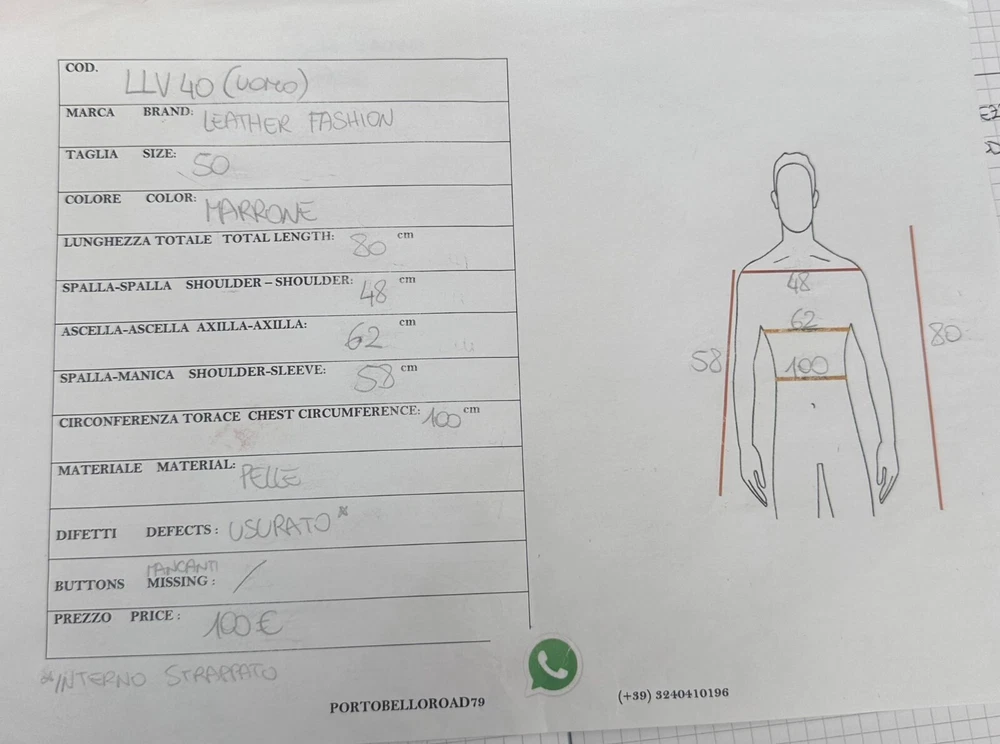 COD. LLV40 (UOMO)
MARCA BRAND: LEATHER FASHION
TAGLIA SIZE: 50
COLORE COLOR: MARRONE
LUNGHEZZA TOTALE TOTAL LENGTH: 80 cm
SPALLA-SPALLA SHOULDER – SHOULDER: 48 cm
ASCELLA-ASCELLA AXILLA-AXILLA: 62 cm
SPALLA-MANICA SHOULDER-SLEEVE: 58 cm
CIRCONFERENZA TORACE CHEST CIRCUMFERENCE: 100 cm
MATERIALE MATERIAL: PELLE
DIFETTI DEFECTS: USURATO*
MANCANTI
BUTTONS MISSING: /
PREZZO PRICE: 100€
*INTERNO STRAPPATO
PORTOBELLOROAD79
(+39) 3240410196
48
62
58
80
100